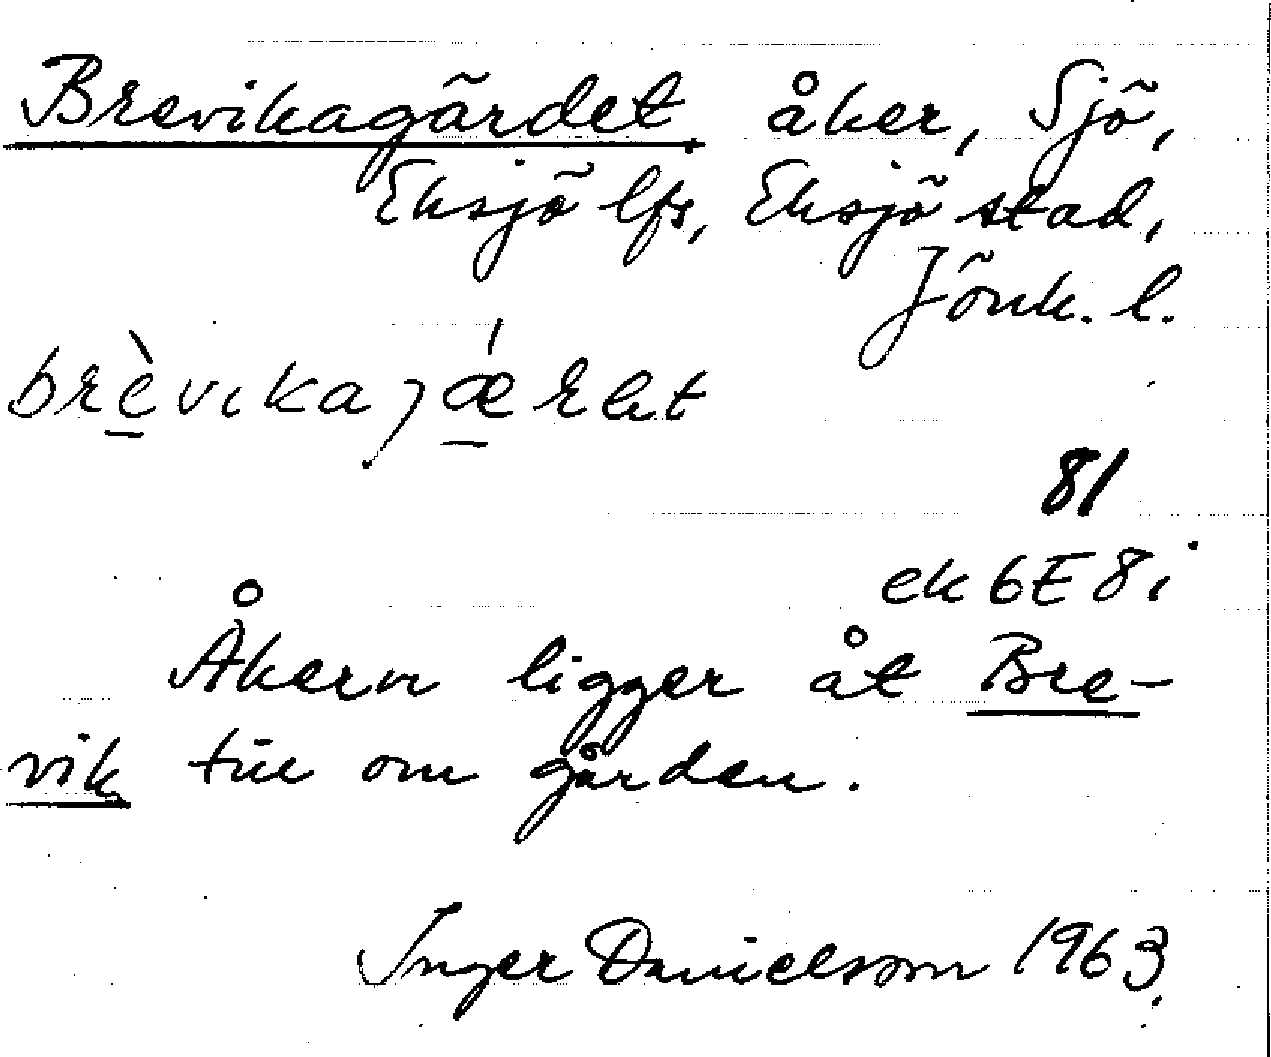 Brevikagärdet åker, Sjö,
Eksjö lfs, Eksjö stad,
Jönk. l.
brèvikajǽrdet
81
ek 6E8i
Åkern ligger åt Bre-
vik till om gården.
Inger Danielsson 1963.